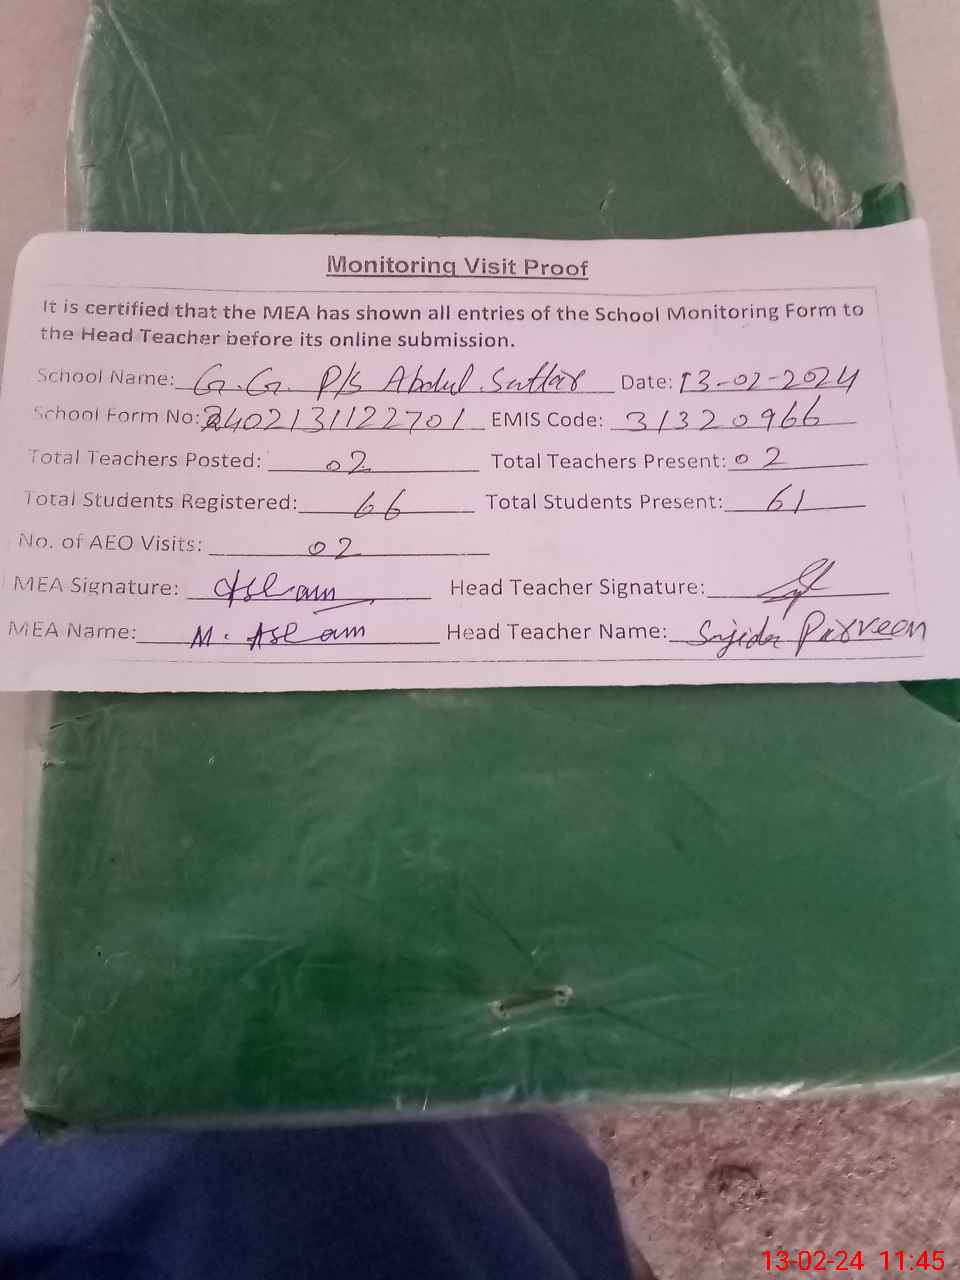 Monitoring Visit Proof
It is certified that the MEA has shown all entries of the School Monitoring Form to
the Head Teacher before its online submission.
School Name: G.G. P/S Abdul Sattar Date: 13-02-2024
School Form No: 2402131122701 EMIS Code: 31320966
Total Teachers Posted: 02 Total Teachers Present: 02
Total Students Registered: 66 Total Students Present: 61
No. of AEO Visits: 02
MEA Signature: Aslam Head Teacher Signature:
MEA Name: M. Aslam Head Teacher Name: Sajida Parveen
13-02-24 11:45